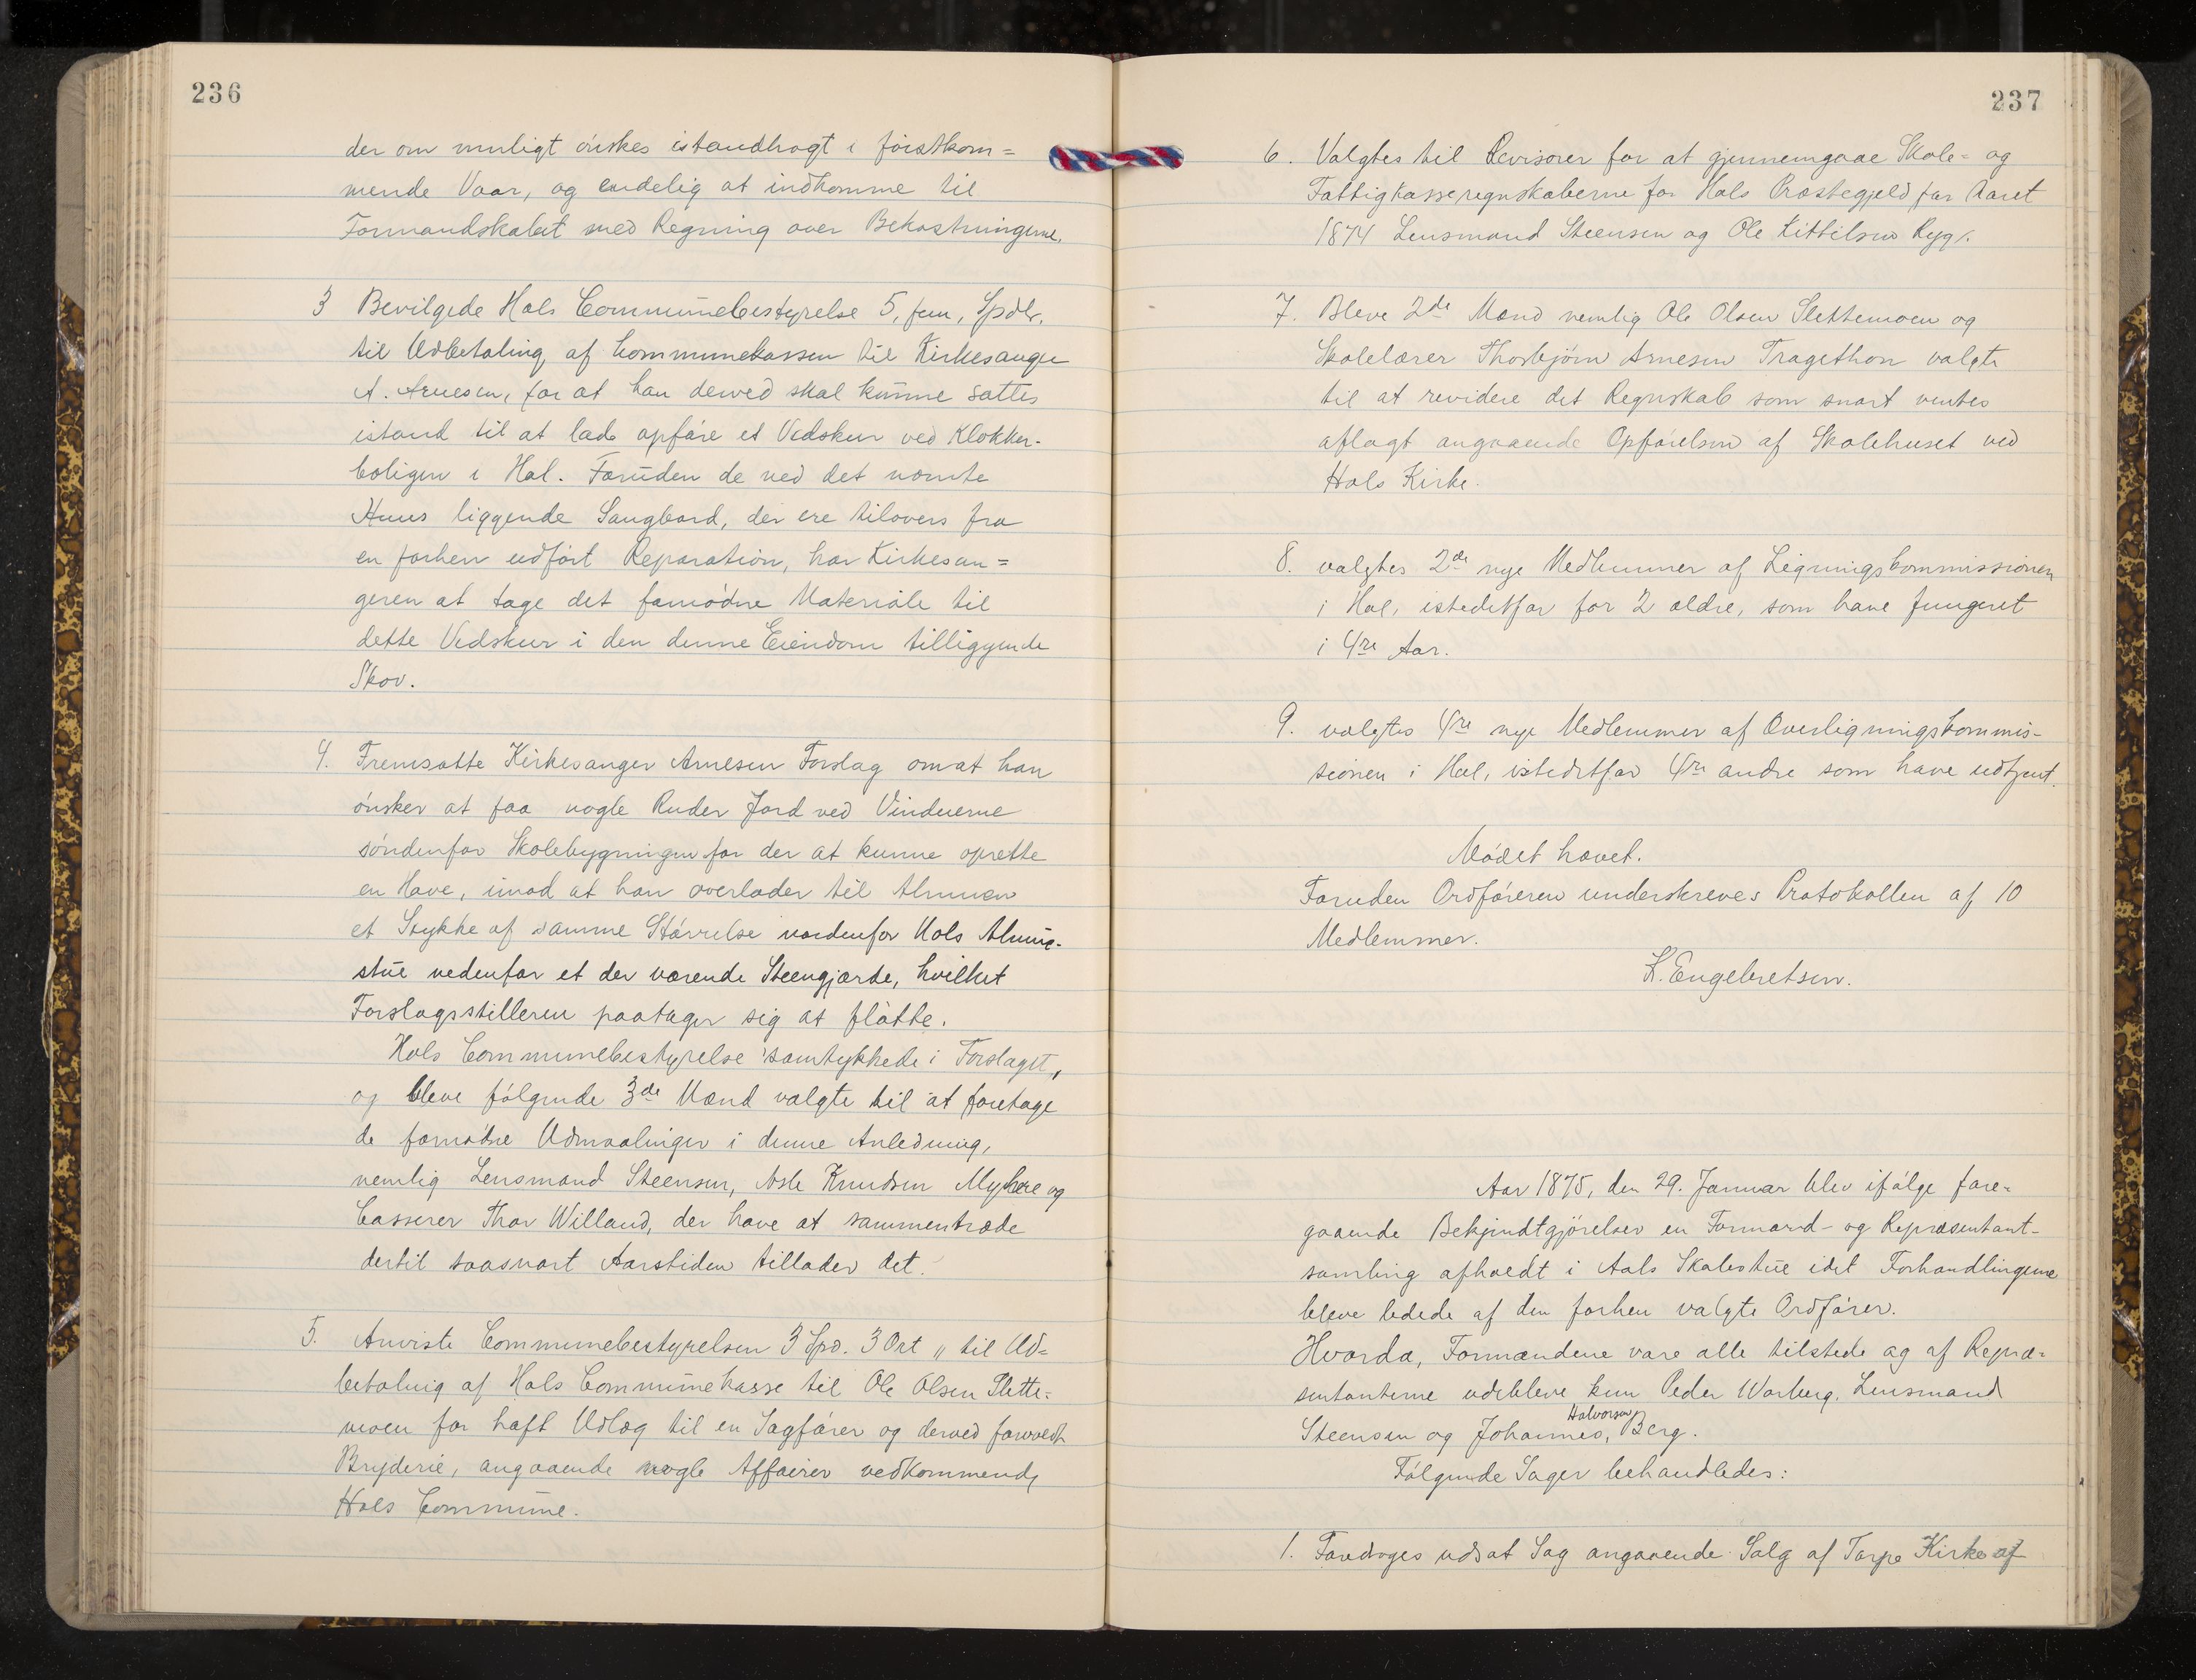 236
der om muligt ønskes istandbragt i førstkom=
mende Vaar, og endelig at indkomme til
Formandskabet med Regning over Bekostningerne.
3 Bevilgede Hols Communebestyrelse 5, fem, Spdlr.
til Udbetaling af Kommunekassen til Kirkesanger
A. Arnesen, for at han derved skal kunne sættes
istand til at lade opføre et Vedskur ved Klokker-
boligen i Hol. Foruden de ved det nævnte
Huus liggende Saugbord, der ere tilovers fra
en forhen udført Reparation, har Kirkesan=
geren at tage det fornødne Materiale til
dette Vedskur i den denne Eiendom tilliggende
Skov.
4. Fremsatte Kirkesanger Arnesen Forslag om at han
ønsker at faa nogle Ruder Jord ved Vinduerne
søndenfor Skolebygningen for der at kunne oprette
en Have, imod at han overlader til Almuen
et Stykke af samme Størrelse nordenfor Hols Almue-
stue nedenfor et der værende Steengjærde, hvilket
Forslagsstilleren paatager sig at fløtte.
Hols Communebestyrelse samtykkede i Forslaget,
og bleve følgende 3de Mænd valgte til at foretage
de fornødne Udmaalinger i denne Anledning,
nemlig Lensmand Steensen, Asle Knudsen Myhre og
Casserer Thor Willand, der have at sammentræde
dertil saasnart Aarstiden tillader det.
5. Anviste Communebestyrelsen 3 Spd. 3 Ort " til Ud=
betalnig af Hols Communekasse til Ole Olsen Slette=
moen for haft Udlæg til en Sagfører og derved forvoldt
Bryderie, angaaende nogle Affairer vedkommende
Hols Commune.
237
6. Valgtes til Revisorer for at gjennemgaae Skole= og
Fattigkasseregnskaberne for Hols Præstegjeld for Aaret
1874 Lensmand Steensen og Ole Kittilsen Ryg.
7. Bleve 2de Mænd nemlig Ole Olsen Slettemoen og
Skolelærer Thorbjørn Arnesen Tragethon valgte
til at revidere det Regnskab som snart ventes
aflagt angaaende Opførelsen af Skolehuset ved
Hols Kirke.
8. valgtes 2de nye Medlemmer af Ligningskommissionen
i Hol, istedetfor for 2 ældre, som have fungeret
i 4re Aar.
9. valgtes 4re nye Medlemmer af Overligningskommis-
sionen i Hol, istedetfor 4re andre som have udtjent.
Mødet hævet.
Foruden Ordføreren underskreves Protokollen af 10
Medlemmer.
K. Engebretsen.
Aar 1875, den 29. Januar blev ifølge fore=
gaaende Bekjendtgjørelser en Formand- og Repræsentant-
samling afholdt i Aals Skolestue idet Forhandlingerne
bleve ledede af den forhen valgte Ordfører.
Hvorda, Formændene vare alle tilstede og af Repræ=
sentanterne udebleve kun Peder Warberg, Lensmand
Steensen og Johannes, Halvorsen Berg.
Følgende Sager behandledes:
1. Foredroges udsat Sag angaaende Salg af Torpe Kirke af